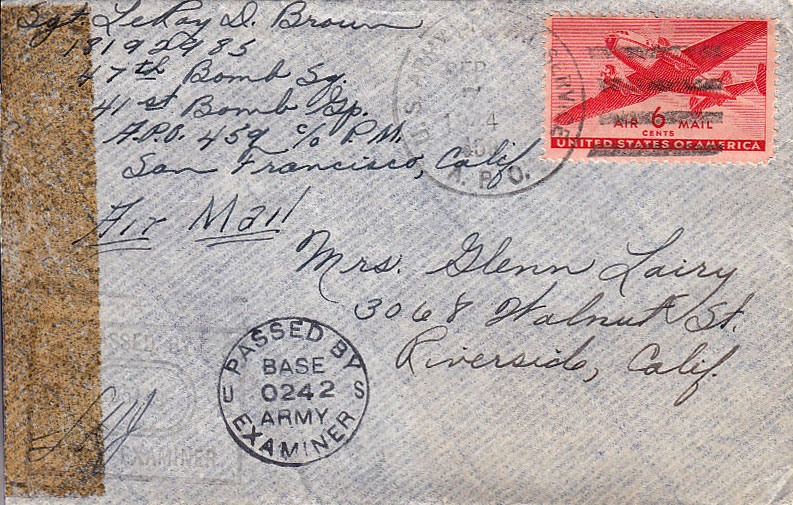 Sgt. LeRoy D. Brown
18192985
47th Bomb Sq.
41st Bomb Gp.
A.P.O. 459 c/o P.M.
San Francisco, Calif
Air Mail
SEP
A. P. O.
AIR 6 MAIL
CENTS
UNITED STATES OF AMERICA
Mrs. Glenn Lairy
3068 Walnut St.
Riverside, Calif.
PASSED BY
BASE
U 0242 S
ARMY
EXAMINER